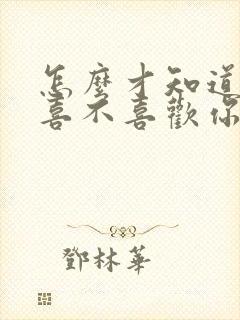 怎麼才知道
喜不喜歡你
鄧林華